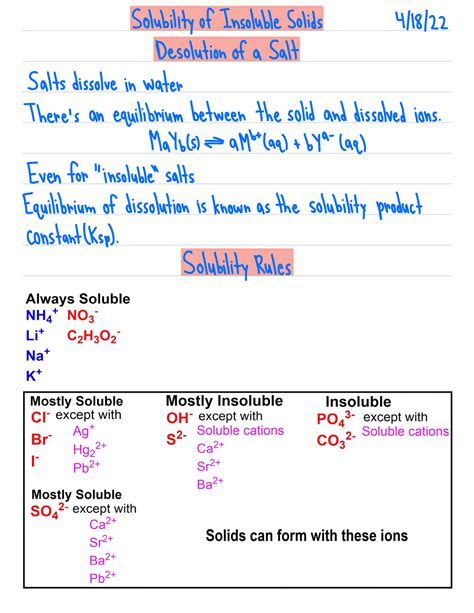 Solubility of Insoluble Solids 4/18/22
Desolution of a Salt
Salts dissolve in water
There's an equilibrium between the solid and dissolved ions.
MaYb(s) ⇌ aM^b+ (aq) + bY^a- (aq)
Even for "insoluble" salts
Equilibrium of dissolution is known as the solubility product
constant (Ksp).
Solubility Rules
Always Soluble
NH₄⁺ NO₃⁻
Li⁺ C₂H₃O₂⁻
Na⁺
K⁺
Mostly Soluble
Cl⁻ except with
Br⁻ Ag⁺
I⁻ Hg₂²⁺
Pb²⁺
Mostly Soluble
SO₄²⁻ except with
Ca²⁺
Sr²⁺
Ba²⁺
Pb²⁺
Mostly Insoluble
OH⁻ except with
S²⁻ Soluble cations
Ca²⁺
Sr²⁺
Ba²⁺
Insoluble
PO₄³⁻ except with
CO₃²⁻ Soluble cations
Solids can form with these ions